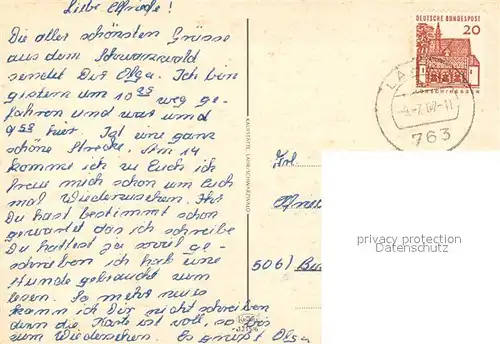 Liebe Elfriede!
Die aller schönsten Grüsse
aus dem Schwarzwald
sendet Dir Olga. Ich bin
gistern um 10 weg ge-
fahren und war umd
9 hier. Ist eine ganz
schöne Strecke. Am 14
komme ich zu Euch ich
freue mich schon um Euch
mal Wiederzusehen. Ihr
Du hast bestimmt schon
gewartet das ich schreibe
Du hattest zu soviel ge-
schrieben ich hab eine
Stunde gebraucht zum
lesen. So mehr nues
kann ich Dir nicht schreiben
denn die Karte ist voll, so bis
zum Wiedersehen. Es grüßt Olga
DEUTSCHE BUNDESPOST
20
LORSCH/HESSEN
LA
763
Frl.
506) Be
privacy protection
dateschutz